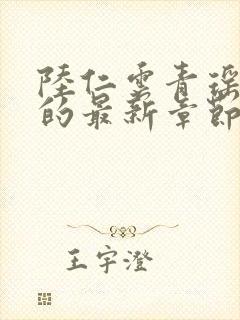 陸仁雲青瑶
的最新章節
王宇澄